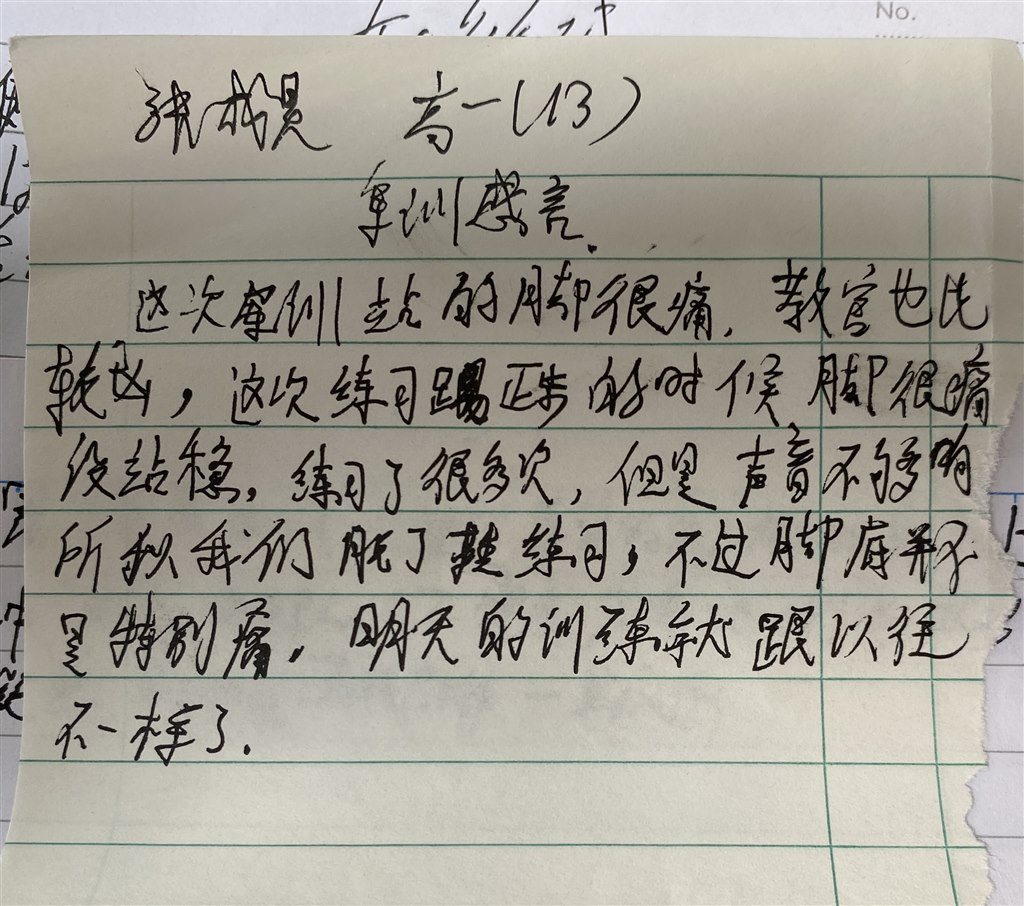 No.
张 高一(13)
军训感言.
这次军训站的脚很痛.教官也比
较凶,这次练习踢正步的时候脚很痛
没站稳,练习了很多次,但是声音不够响
所以我们脱了鞋练习,不过脚底并不
是特别痛.明天的训练就跟以往
不一样了.